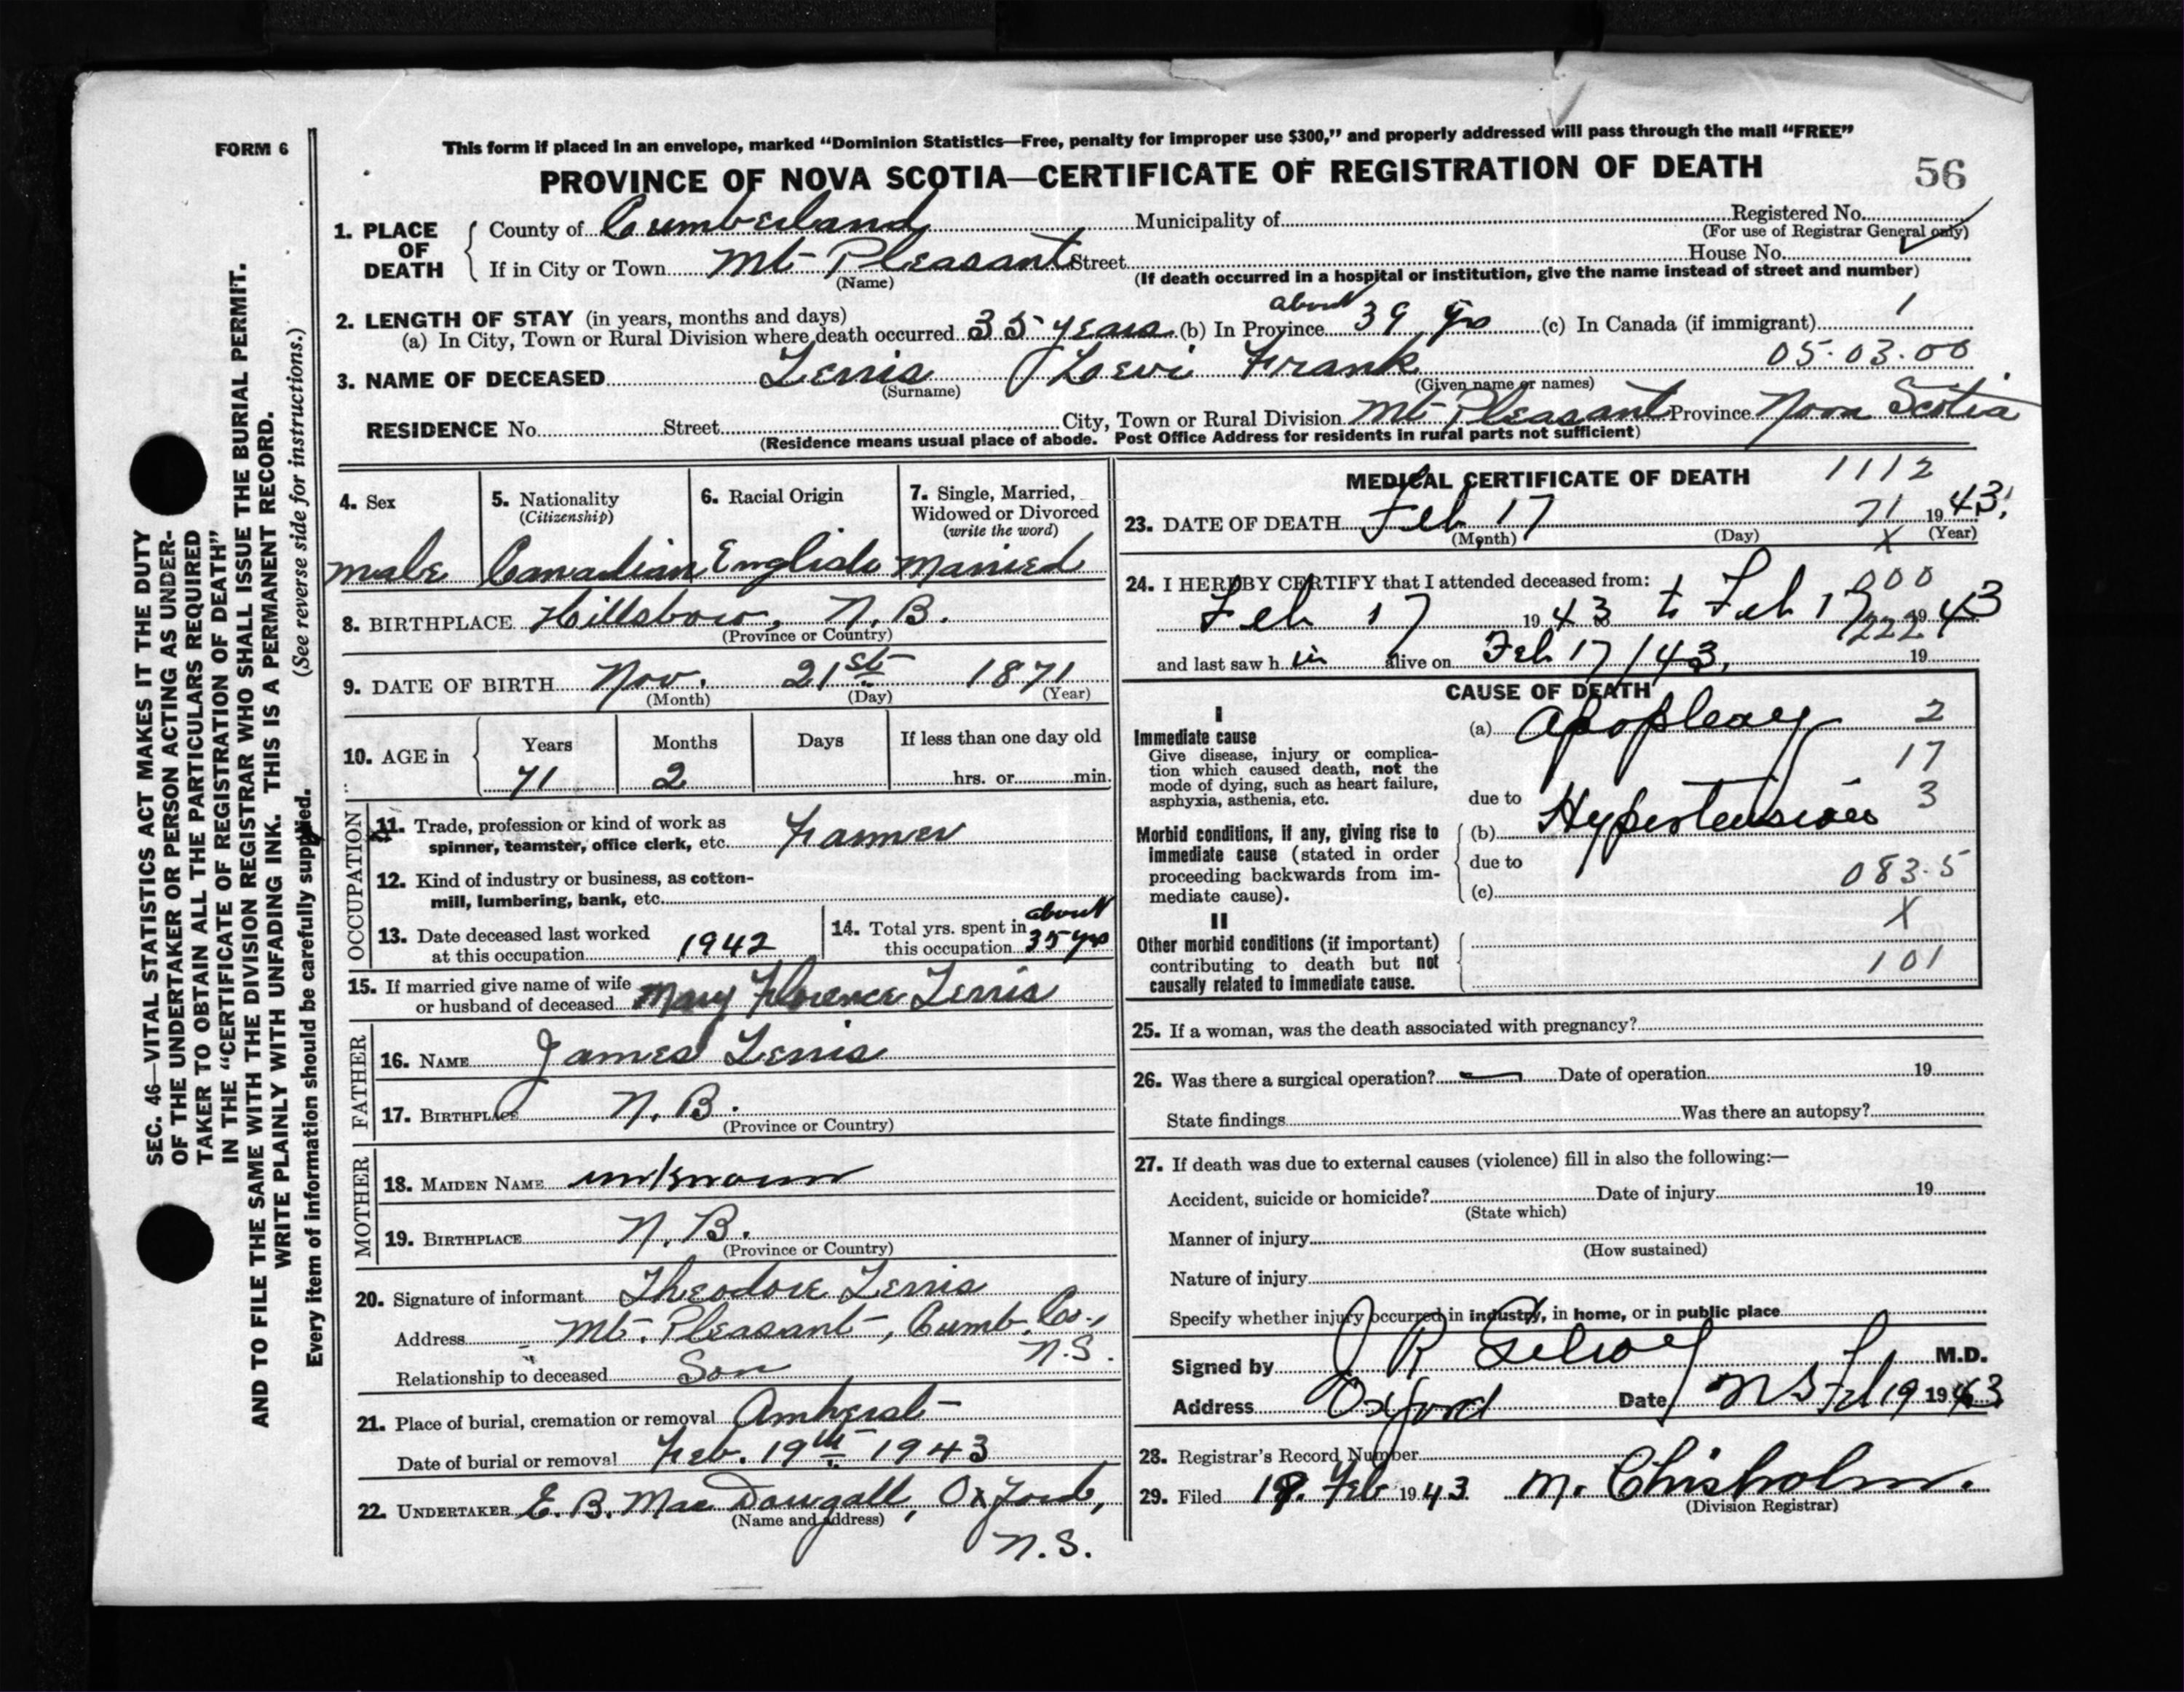 FORM 6
This form if placed in an envelope, marked "Dominion Statistics—Free, penalty for improper use $300," and properly addressed will pass through the mail "FREE"
PROVINCE OF NOVA SCOTIA—CERTIFICATE OF REGISTRATION OF DEATH
56
1. PLACE OF DEATH
County of Cumberland Municipality of Registered No.
(For use of Registrar General only)
If in City or Town Mt Pleasant Street House No.
(Name) (If death occurred in a hospital or institution, give the name instead of street and number)
2. LENGTH OF STAY (in years, months and days)
(a) In City, Town or Rural Division where death occurred 35 years (b) In Province about 39 yrs (c) In Canada (if immigrant) 1
05.03.00
3. NAME OF DECEASED Levi Frank
(Surname) (Given name or names)
RESIDENCE No. Street City, Town or Rural Division Mt Pleasant Province Nova Scotia
(Residence means usual place of abode. Post Office Address for residents in rural parts not sufficient)
4. Sex
male
5. Nationality
(Citizenship)
Canadian
6. Racial Origin
English
7. Single, Married, Widowed or Divorced
(write the word)
Married
8. BIRTHPLACE Hillsboro, N.B.
(Province or Country)
9. DATE OF BIRTH Nov. 21st 1871
(Month) (Day) (Year)
10. AGE in
Years Months Days If less than one day old
71 2 hrs. or min.
OCCUPATION
11. Trade, profession or kind of work as
spinner, teamster, office clerk, etc. Farmer
12. Kind of industry or business, as cotton-
mill, lumbering, bank, etc.
13. Date deceased last worked
at this occupation 1942
14. Total yrs. spent in
this occupation about 35 yrs
15. If married give name of wife
or husband of deceased Mary Florence
FATHER
16. NAME James
17. BIRTHPLACE N.B.
(Province or Country)
MOTHER
18. MAIDEN NAME unknown
19. BIRTHPLACE N.B.
(Province or Country)
20. Signature of informant Theodore
Address Mt. Pleasant, Cumb. Co., N.S.
Relationship to deceased Son
21. Place of burial, cremation or removal Amherst
Date of burial or removal Feb. 19th 1943
22. UNDERTAKER E. B. MacDougall, Oxford,
(Name and address)
N.S.
MEDICAL CERTIFICATE OF DEATH
1112
23. DATE OF DEATH Feb 17 71 1943
(Month) (Day) (Year)
X
24. I HEREBY CERTIFY that I attended deceased from:
000
Feb 17 1943 to Feb 17 1943
222
and last saw h im alive on Feb 17/43, 19
CAUSE OF DEATH
I
Immediate cause
Give disease, injury or complica-
tion which caused death, not the
mode of dying, such as heart failure,
asphyxia, asthenia, etc.
(a) Apoplexy 2
17
due to
Morbid conditions, if any, giving rise to
immediate cause (stated in order
proceeding backwards from im-
mediate cause).
(b) Hypertension 3
due to
(c) 083.5
X
II
Other morbid conditions (if important)
contributing to death but not
causally related to immediate cause.
101
25. If a woman, was the death associated with pregnancy?
26. Was there a surgical operation? — Date of operation 19
State findings Was there an autopsy?
27. If death was due to external causes (violence) fill in also the following:—
Accident, suicide or homicide? Date of injury 19
(State which)
Manner of injury
(How sustained)
Nature of injury
Specify whether injury occurred in industry, in home, or in public place
Signed by J R M.D.
Address Oxford Date N S Feb 19 1943
28. Registrar's Record Number
29. Filed 18 Feb 1943 M. Chisholm.
(Division Registrar)
SEC. 46—VITAL STATISTICS ACT MAKES IT THE DUTY
OF THE UNDERTAKER OR PERSON ACTING AS UNDER-
TAKER TO OBTAIN ALL THE PARTICULARS REQUIRED
IN THE "CERTIFICATE OF REGISTRATION OF DEATH"
AND TO FILE THE SAME WITH THE DIVISION REGISTRAR WHO SHALL ISSUE THE BURIAL PERMIT.
WRITE PLAINLY WITH UNFADING INK. THIS IS A PERMANENT RECORD.
Every item of information should be carefully supplied. (See reverse side for instructions.)